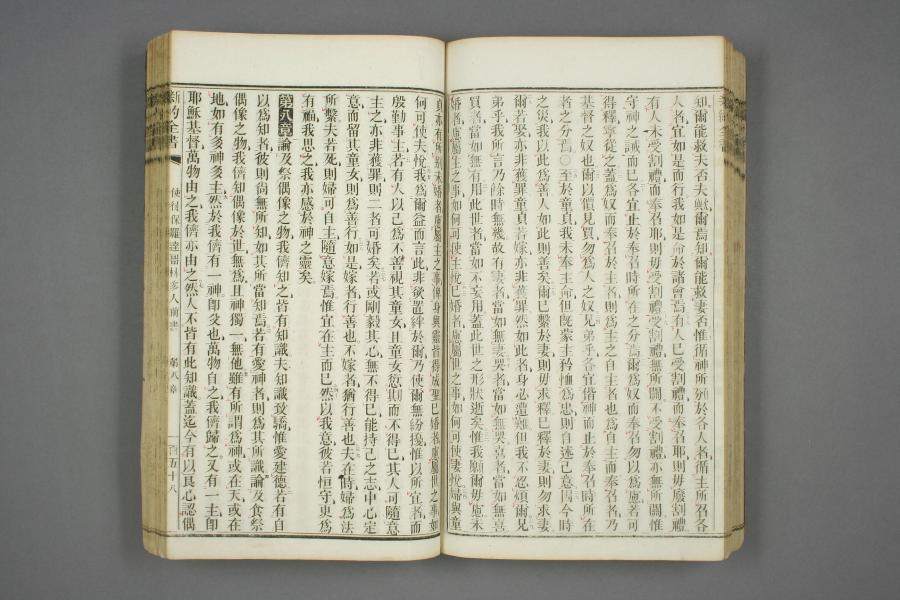 知爾能救夫否夫歟爾焉知爾能救妻否惟循神所分於各人者循主所召各
人者宜如是而行我如是命於諸會焉有人已受割禮而奉召耶則毋廢割禮
有人未受割禮而奉召耶則毋受割禮受割禮無所關不受割禮亦無所關惟
守神之誡而已各宜止於奉召時所在之分焉爾爲奴而奉召勿以爲慮若可
得釋寧從之蓋爲奴而奉召於主者則爲主之自主者也爲自主而奉召者乃
基督之奴也爾以値見買勿爲人之奴兄弟乎各宜偕神而止於奉召時所在
者之分焉○至於童貞我未奉主命但旣蒙主矜恤爲忠則自述己意因今時
之災我以此爲善人如此則善矣爾已繫於妻則毋求釋已釋於妻則勿求妻
爾若娶亦非獲罪童貞若嫁亦非獲罪然如此者身必遭難但我不忍煩爾兄
弟乎我所言乃餘時無幾故有妻者當如無妻哭者當如無哭喜者當如無喜
買者當如無有用此世者當如不妄用蓋此世之形狀逝矣惟我願爾毋慮未
婚者慮屬主之事如何可使主悅已婚者慮屬世之事如何可使妻悅婦與童
貞亦有所別未婚者慮屬主之事俾身與靈皆得成聖已婚者慮屬世之事如
何可使夫悅我爲爾益而言此非欲置絆於爾乃使爾無紛擾惟以所宜者而
殷勤事主若有人以己爲不善視其童女且童女愆期而不得已其人可隨意
主之亦非獲罪則二者可婚矣若或剛毅其心無不得已能持己之志中心定
意而留其童女則爲善行如是嫁者行善也不嫁者猶行善也夫在時婦爲法
所繫夫若死則婦可自主隨意嫁焉惟宜在主而已然以我意彼若恒守更爲
有福我思之我亦感於神之靈矣
第八章論及祭偶像之物我儕知之皆有知識夫知識致驕惟愛建德若有自
以爲知者彼則尙無所知如其所當知焉若有愛神者則爲其所識論及食祭
偶像之物我儕知偶像於世無爲且神獨一無他雖有所謂爲神或在天或在
地如有多神多主然於我儕有一神卽父也萬物自之我儕歸之又有一主卽
耶穌基督萬物由之我儕亦由之然人不皆有此知識蓋迄今有以良心認偶
新約全書 使徒保羅達哥林多人前書 第八章 一百五十八